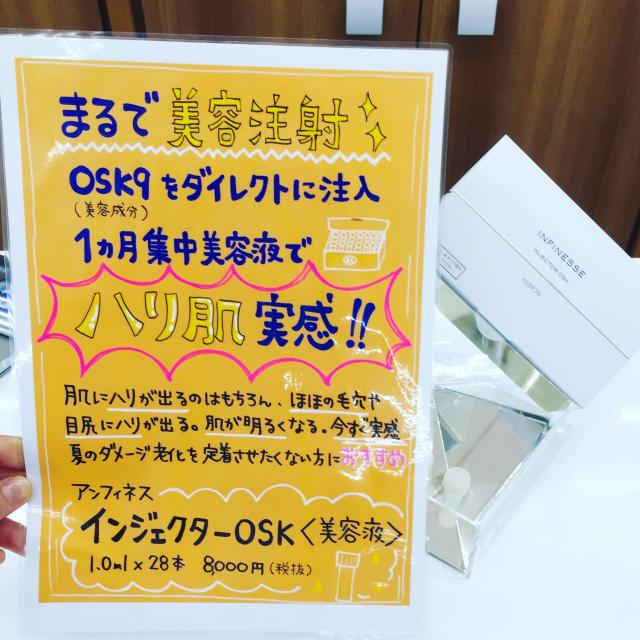 まるで美容注射
OSK9をダイレクトに注入
(美容成分)
1ヵ月集中美容液で
ハリ肌実感!!
肌にハリが出るのはもちろん、ほほの毛穴や
目尻にハリが出る。肌が明るくなる。今すぐ実感
夏のダメージ老化を定着させたくない方におすすめ
アンフィネス
インジェクターOSK〈美容液〉
1.0ml×28本 8000円(税抜)
INFINESSE
INJECTOR OSK
ALBION